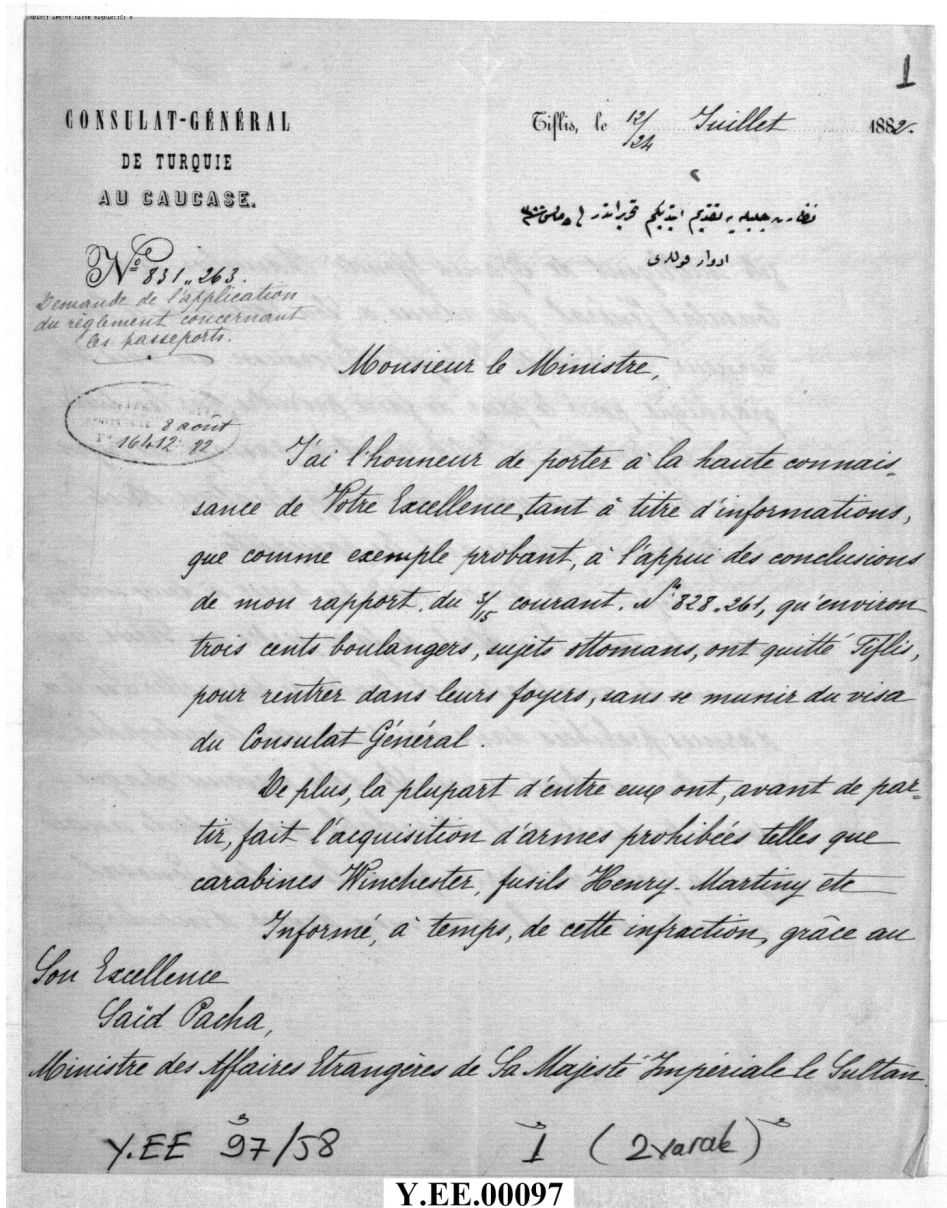 OSMANLI ARŞİVİ DAİRE BAŞKANLIĞI
1
CONSULAT-GÉNÉRAL
DE TURQUIE
AU CAUCASE.
Tiflis, le 12/24 Juillet 1882.
ادوار قوللری
Nº 831,,263.
Demande de l'application
du règlement concernant
les passeports.
8 août
16412 82
Monsieur le Ministre,
J'ai l'honneur de porter à la haute connais-
sance de Votre Excellence, tant à titre d'informations,
que comme exemple probant, à l'appui des conclusions
de mon rapport, du 3/15 courant. Nº 828.261, qu'environ
trois cents boulangers, sujets ottomans, ont quitté Tiflis,
pour rentrer dans leurs foyers, sans se munir du visa
du Consulat Général.
De plus, la plupart d'entre eux ont, avant de par-
tir, fait l'acquisition d'armes prohibées telles que
carabines Winchester, fusils Henry-Martiny etc
Informé, à temps, de cette infraction, grâce au
Son Excellence
Saïd Pacha,
Ministre des Affaires Etrangères de Sa Majesté Impériale le Sultan.
Y.EE 97/58 1 (2 varak)
Y.EE.00097